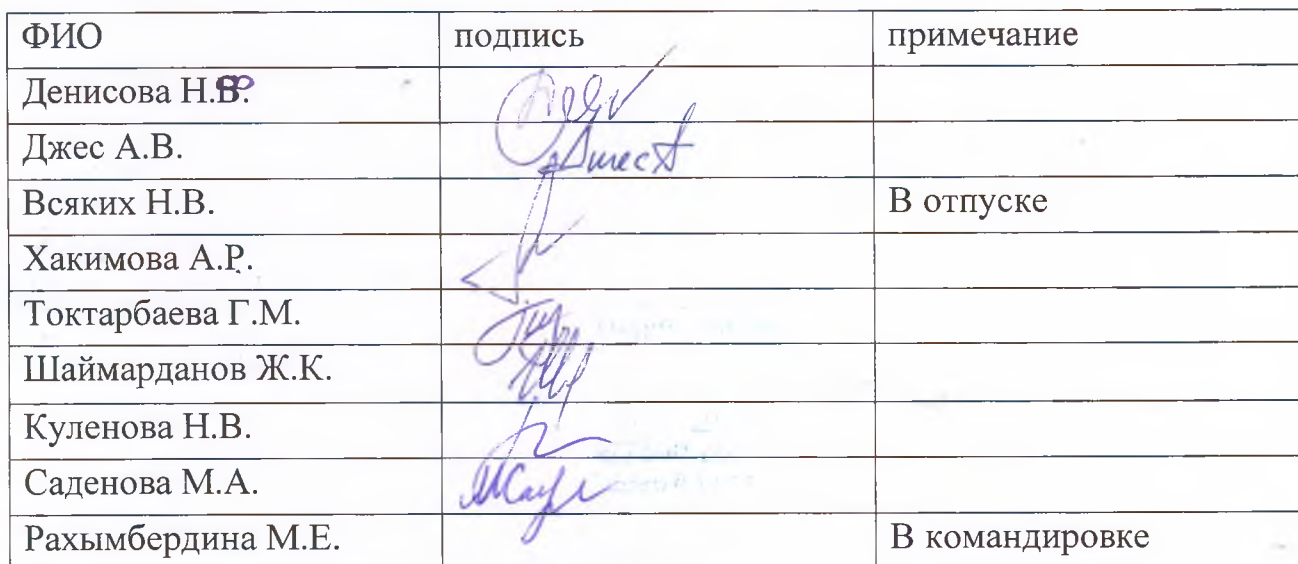 ФИО подпись примечание
Денисова Н.Ф.
Джес А.В. Джес А
Всяких Н.В. В отпуске
Хакимова А.Р.
Токтарбаева Г.М.
Шаймарданов Ж.К.
Куленова Н.В.
Саденова М.А.
Рахымбердина М.Е. В командировке